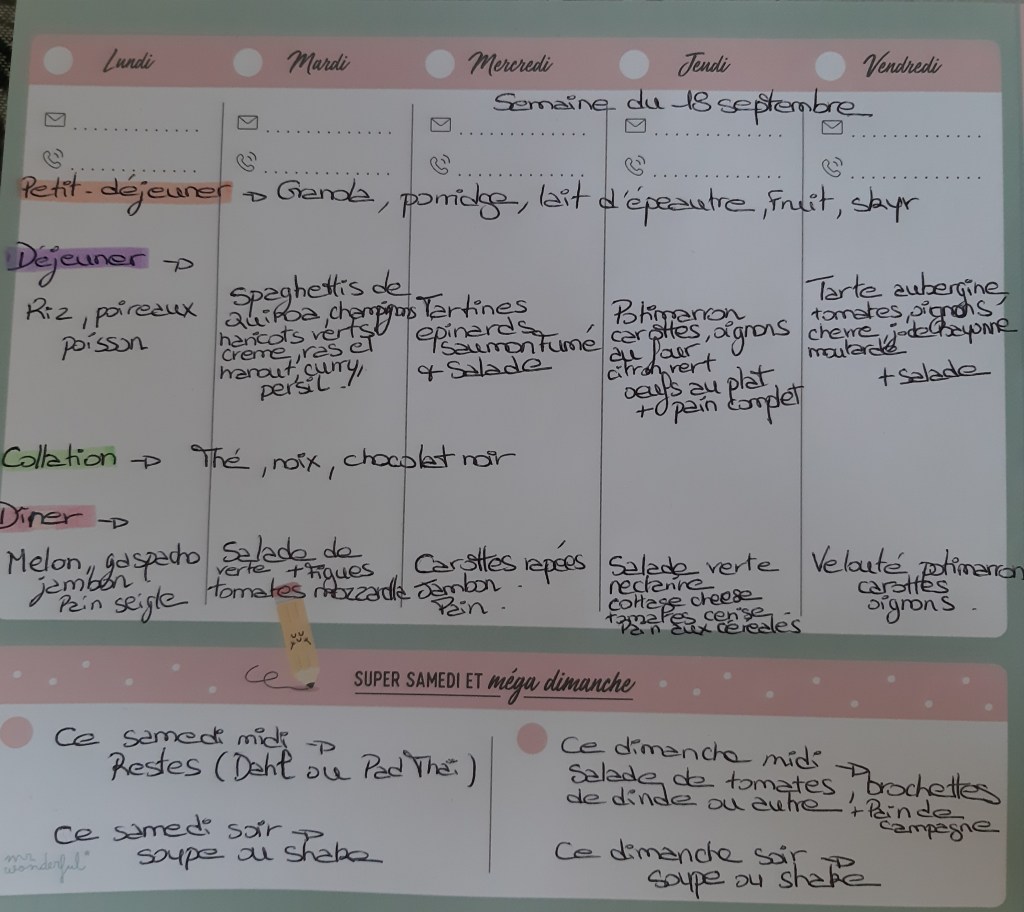 Lundi
Mardi
Mercredi
Jeudi
Vendredi
Semaine du 18 septembre
Petit-déjeuner → Granola, porridge, lait d'épeautre, Fruit, skyr
Déjeuner →
Riz, poireaux
poisson
Spaghettis de
quinoa, champignons
haricots verts
crème, ras el
hanout, curry,
persil
Tartines
epinards
saumon fumé
+ Salade
Potimarron
carottes, oignons
au four
citron vert
oeufs au plat
+ pain complet
Tarte aubergine,
tomates, oignons,
chèvre, j. de Bayonne
moutarde
+ salade
Collation → Thé, noix, chocolat noir
Dîner →
Melon, gaspacho
jambon
Pain seigle
Salade de
verte + figues
tomates mozzarella
Carottes rapées
Jambon
Pain.
Salade verte
nectarine
cottage cheese
tomates cerise
Pain aux céréales
Velouté potimarron
carottes
oignons.
Ce
SUPER SAMEDI ET méga dimanche
Ce samedi midi →
Restes (Dahl ou Pad Thaï)
Ce samedi soir →
soupe ou shake
Ce dimanche midi →
Salade de tomates, brochettes
de dinde ou autre + Pain de
campagne
Ce dimanche soir →
soupe ou shake
mr.
wonderful*